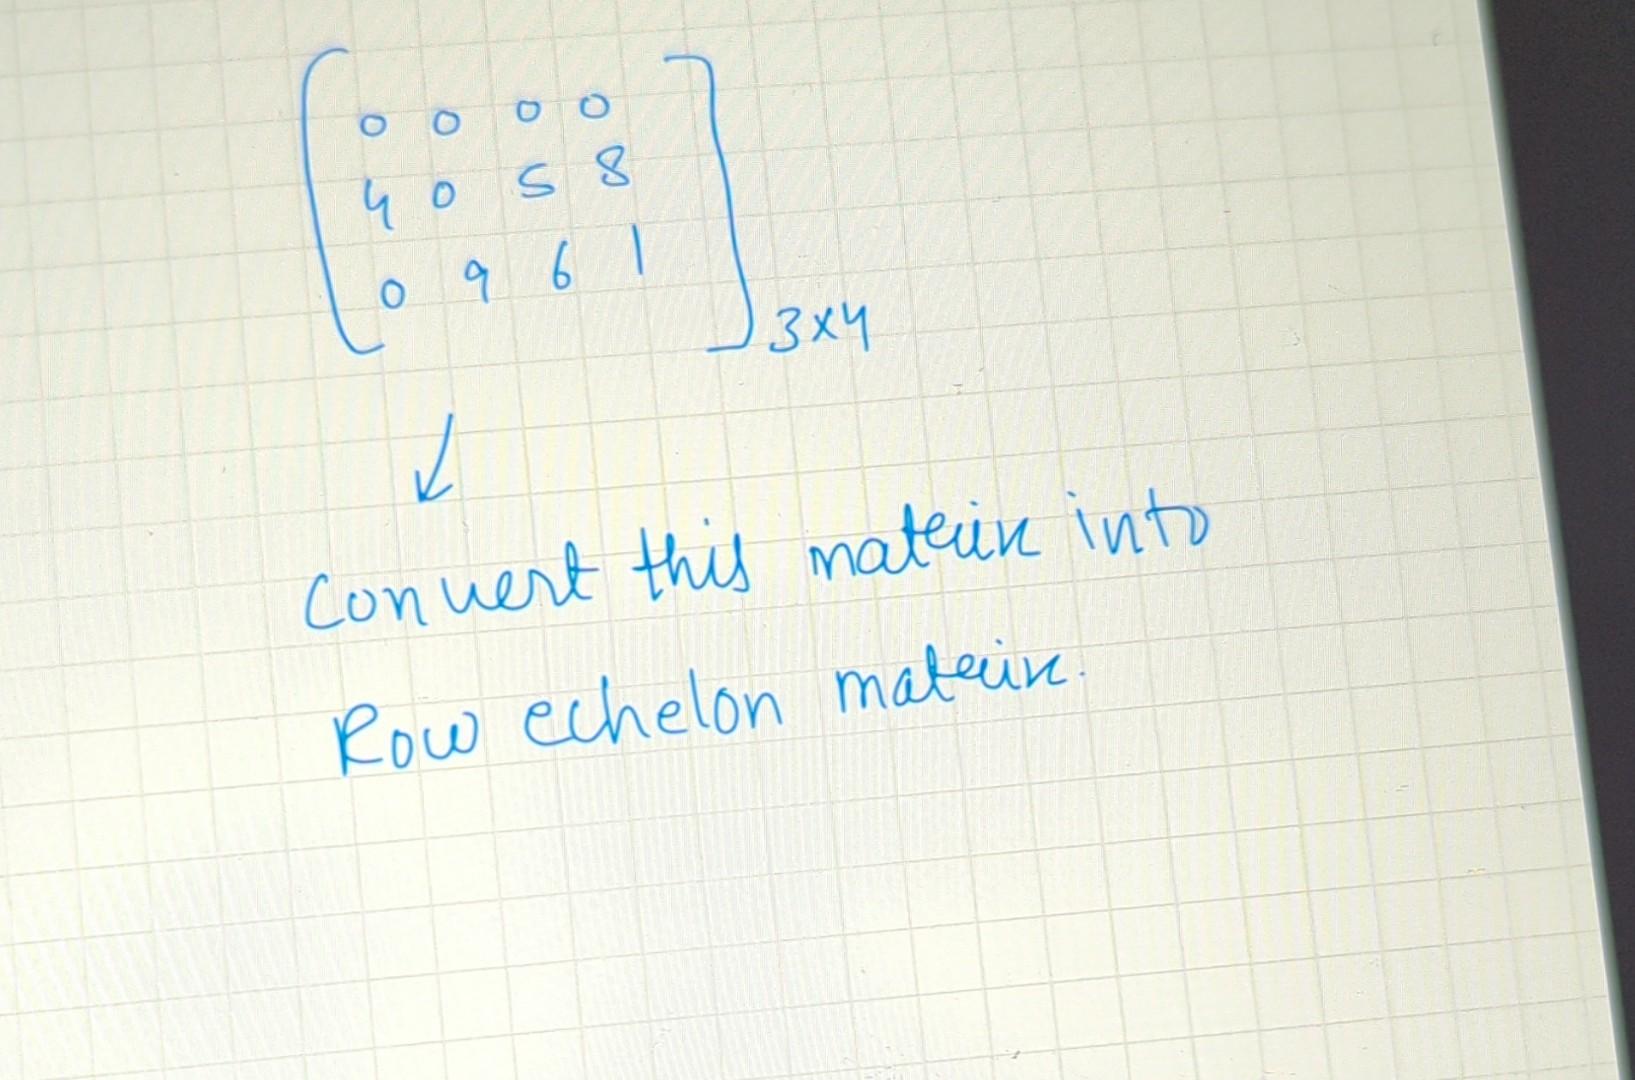 0 0 0 0
4 0 5 8
0 9 6 1
3x4
Convert this matrix into
Row echelon matrix.